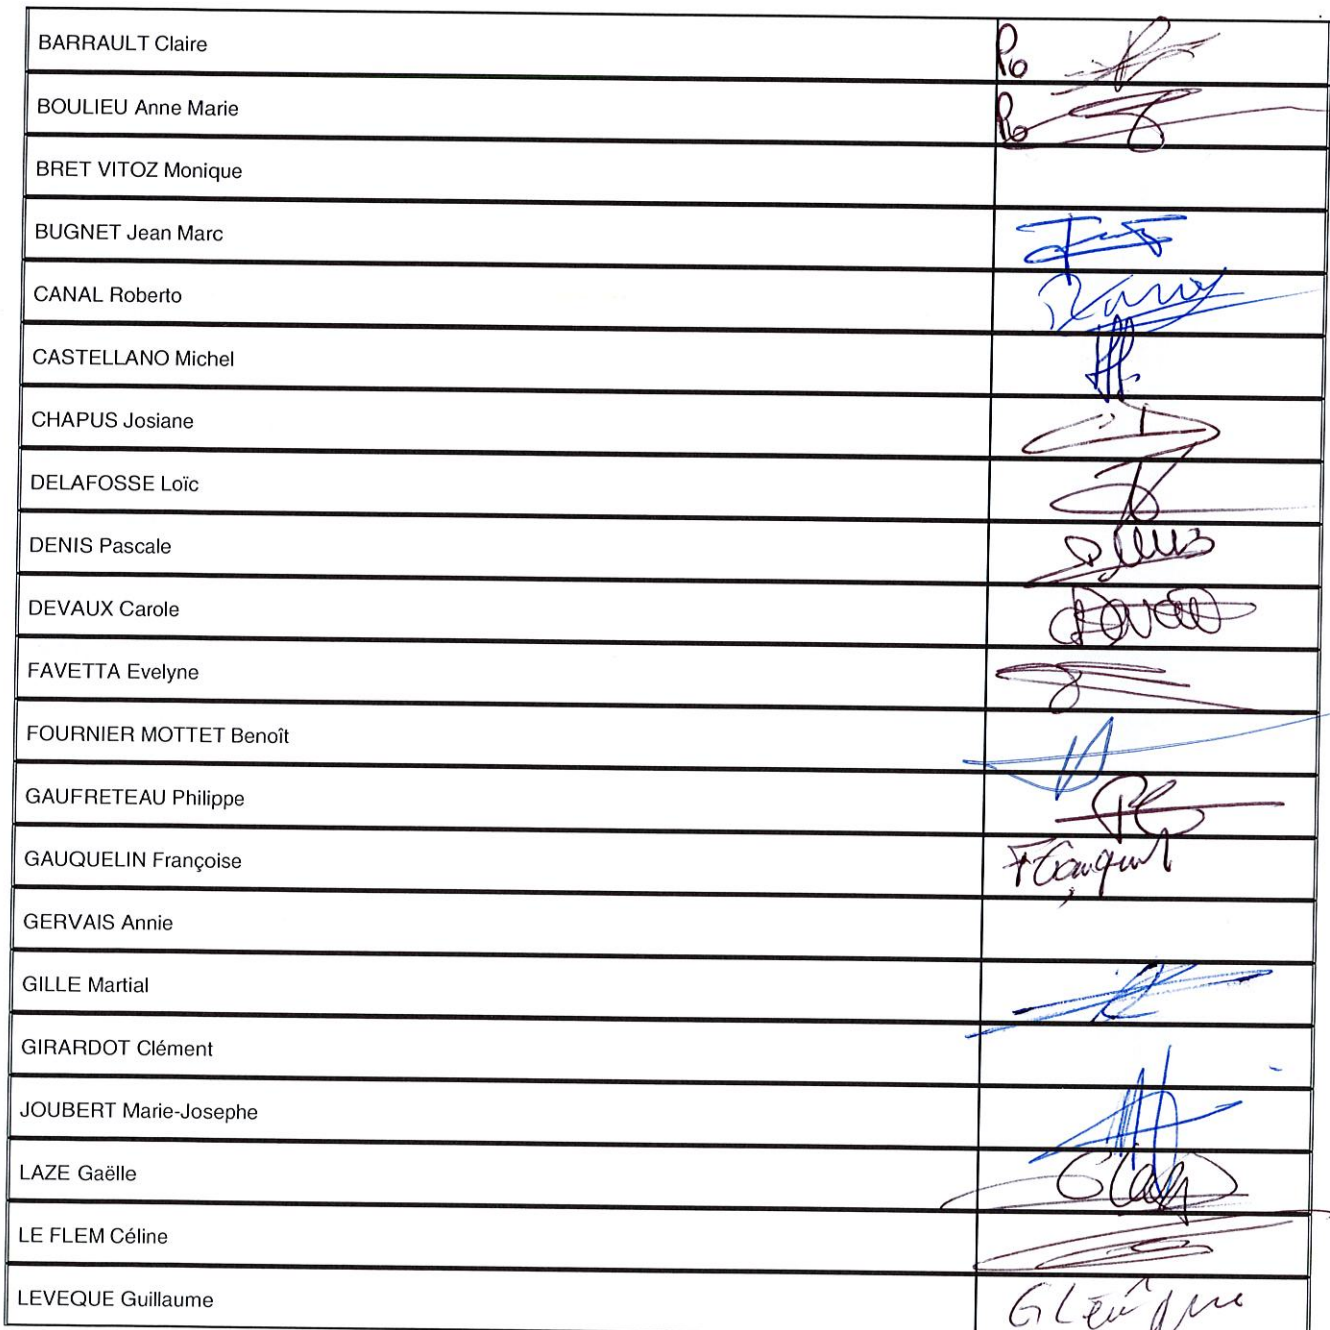 BARRAULT Claire
Po
BOULIEU Anne Marie
Po
BRET VITOZ Monique
BUGNET Jean Marc
CANAL Roberto
CASTELLANO Michel
CHAPUS Josiane
DELAFOSSE Loïc
DENIS Pascale
DEVAUX Carole
FAVETTA Evelyne
FOURNIER MOTTET Benoît
GAUFRETEAU Philippe
GAUQUELIN Françoise
GERVAIS Annie
GILLE Martial
GIRARDOT Clément
JOUBERT Marie-Josephe
LAZE Gaëlle
LE FLEM Céline
LEVEQUE Guillaume